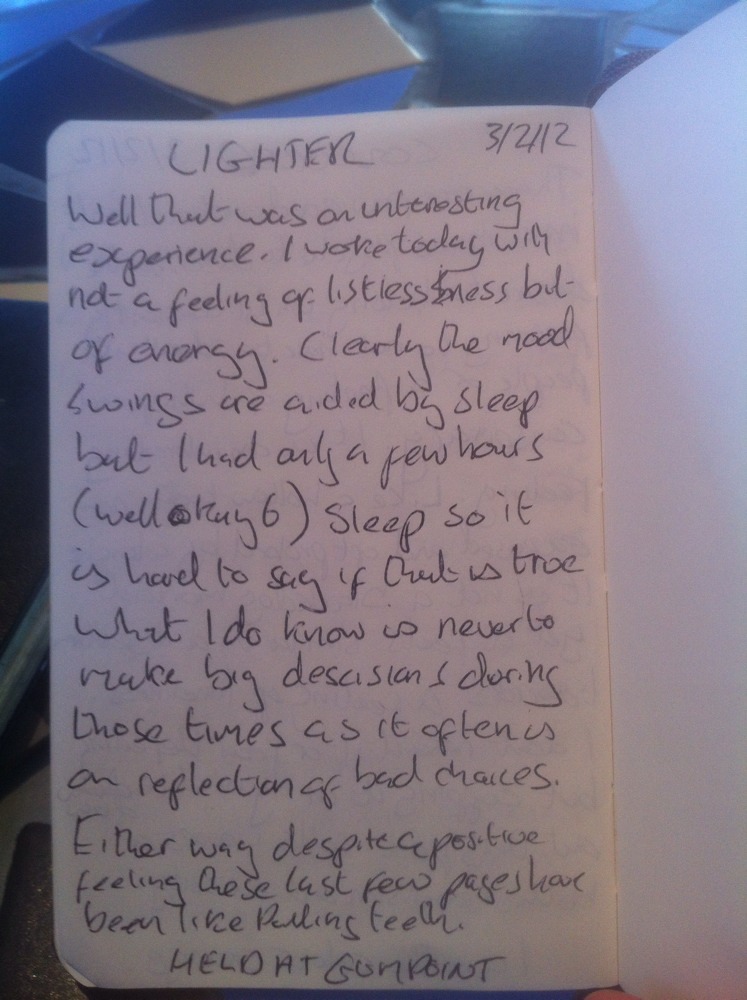 LIGHTER 3/2/12
Well that was an interesting
experience. I woke today with
not a feeling of listlessness but
of energy. Clearly the mood
swings are aided by sleep
but I had only a few hours
(well okay 6) sleep so it
is hard to say if that is true
what I do know is never to
make big descisions during
those times as it often is
on reflection of bad choices.
Either way despite a positive
feeling these last few pages have
been like pulling teeth.
HELD AT GUNPOINT